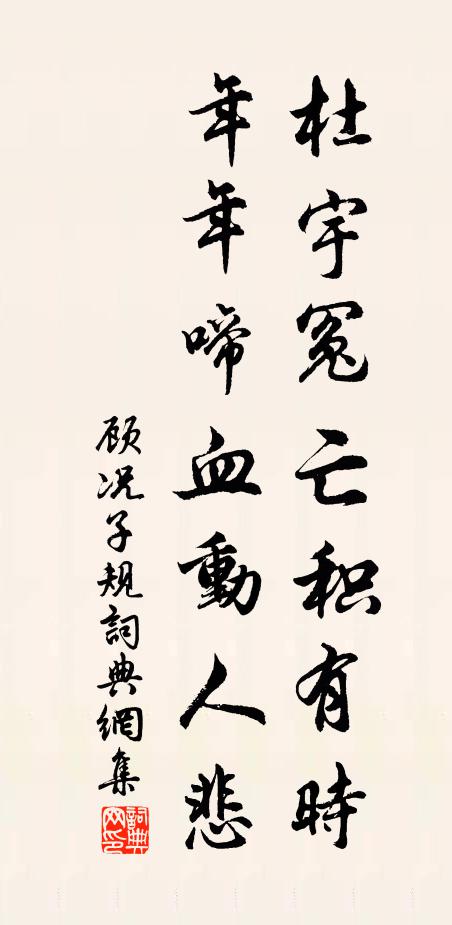 杜宇冤亡积有時
年年啼血動人悲
顾况子規詞典網集
詞典網印